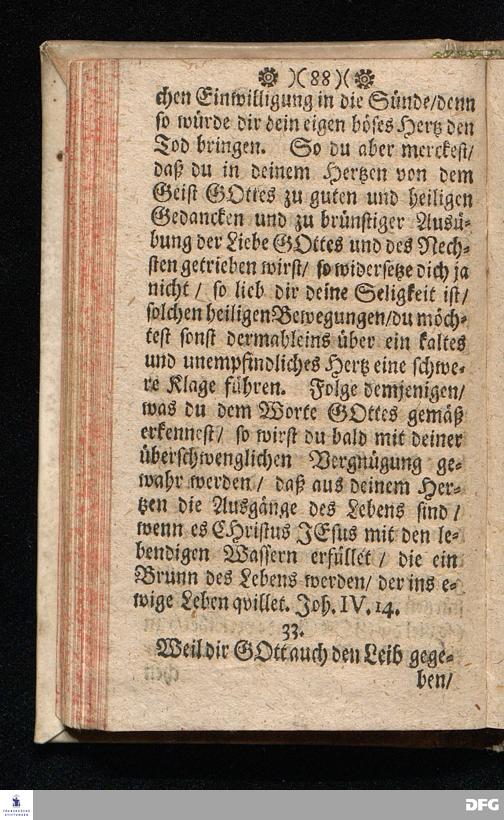 )( 88 )(
chen Einwilligung in die Sünde/denn
so würde dir dein eigen böses Hertz den
Tod bringen. So du aber merckest/
daß du in deinem Hertzen von dem
Geist GOttes zu guten und heiligen
Gedancken und zu brünstiger Ausü-
bung der Liebe GOttes und des Nech-
sten getrieben wirst/ so widersetze dich ja
nicht / so lieb dir deine Seligkeit ist/
solchen heiligen Bewegungen/du möch-
test sonst dermahleins über ein kaltes
und unempfindliches Hertz eine schwe-
re Klage führen. Folge demjenigen/
was du dem Worte GOttes gemäß
erkennest/ so wirst du bald mit deiner
überschwenglichen Vergnügung ge-
wahr werden / daß aus deinem Her-
tzen die Ausgänge des Lebens sind /
wenn es CHristus JEsus mit den le-
bendigen Wassern erfüllet / die ein
Brunn des Lebens werden/ der ins e-
wige Leben qvillet. Joh. IV. 14.
33.
Weil dir GOtt auch den Leib gege-
ben/
FRANCKESCHE STIFTUNGEN
DFG